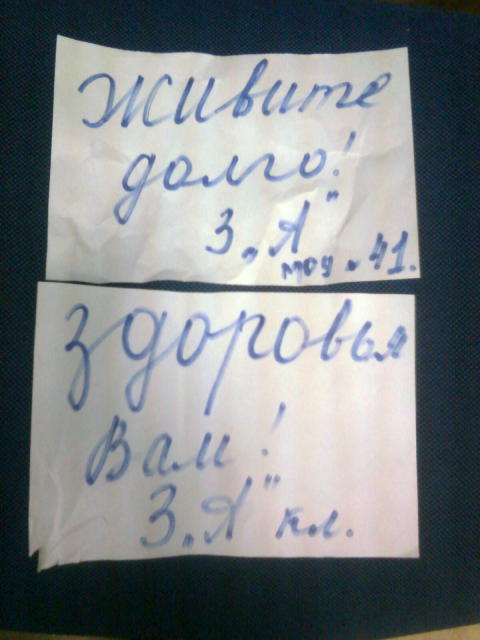 Живите
долго!
3 „А"
моу. 41.
Здоровья
Вам!
3 „А" кл.